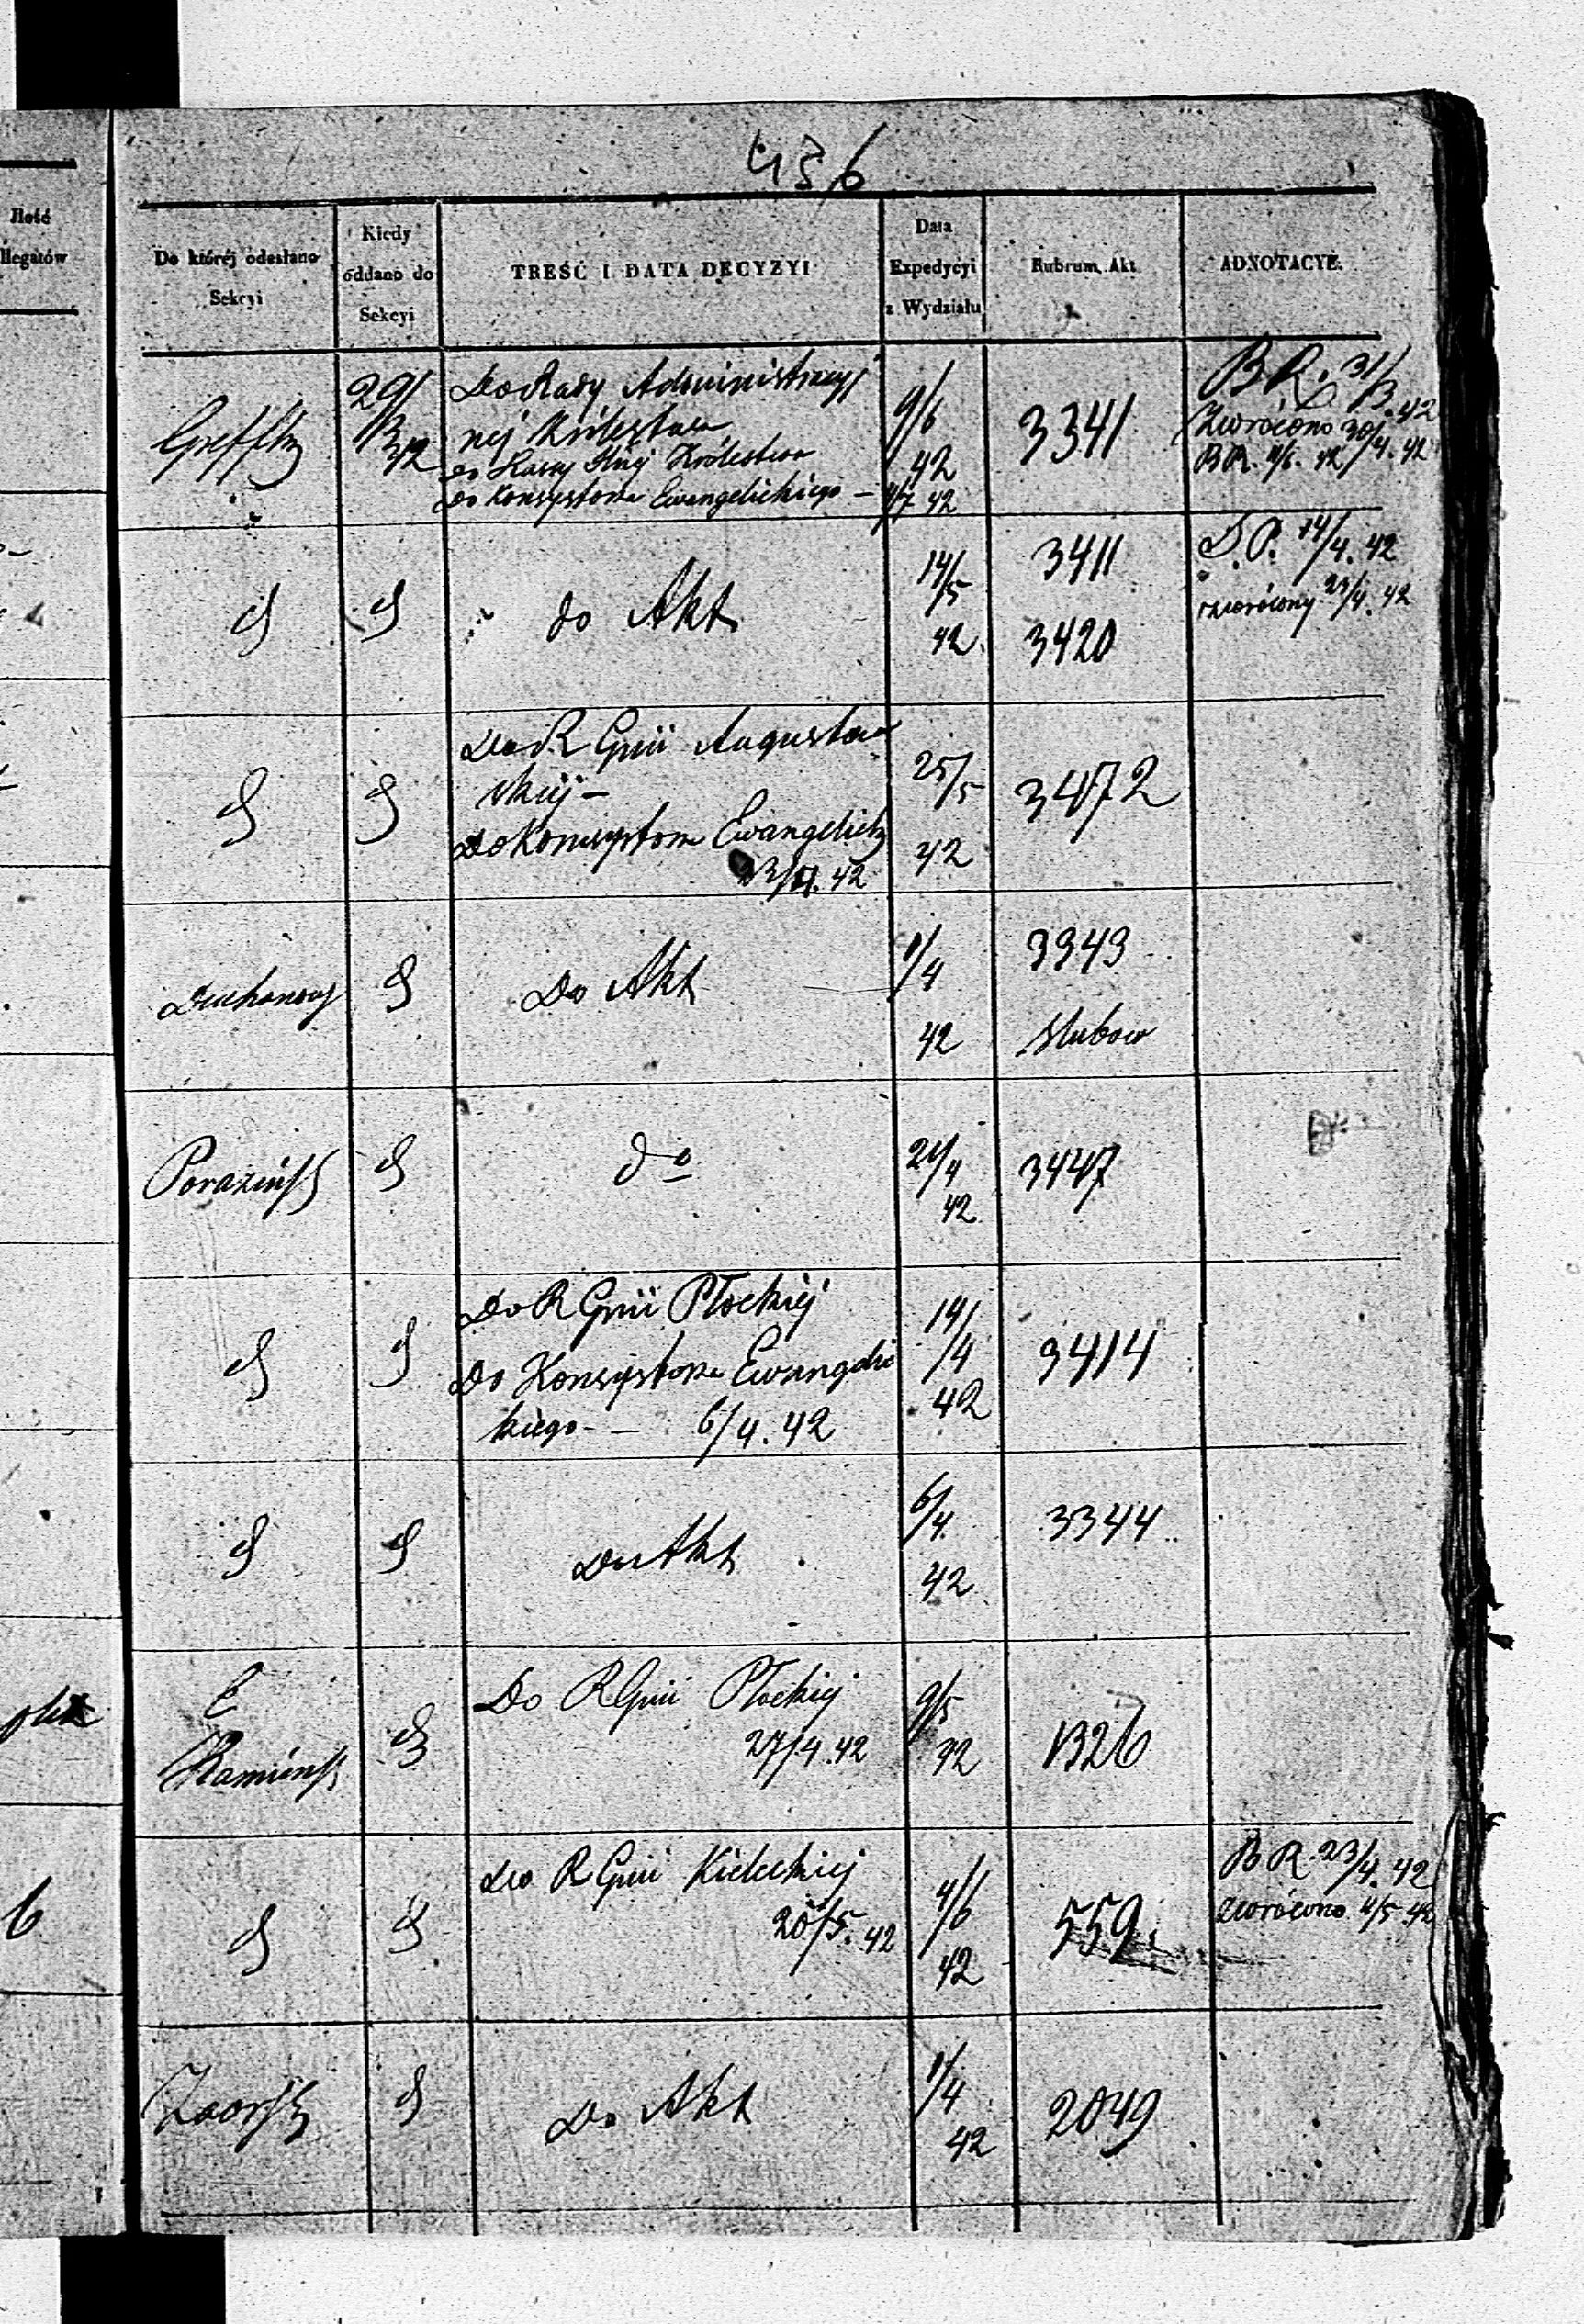 436
Ilość
llegatów
Do któréj odesłano
Sekcyi
Kiedy
oddano do
Sekcyi
TREŚĆ I DATA DECYZYI
Data
Expedycyi
z Wydziału
Rubrum Akt
ADNOTACYE.
29/
3
42
Do Rady Administracyj
nej Królestwa
do Królestwa
do Konsystorza Ewangelickiego —
9/6
42
4/7 42
3341
B R. 31/3.42
Zwrócono 30/4.42
B R. 4/6. 42
do Akt
14/5
42
3411
3420
D. P. 14/4. 42
zwrócony 23/4. 42
Do R Gnii Augustow
skiéj —
Do Konsystorza Ewangelick
23/4. 42
25/5
42
3472
Do Akt
1/4
42
3343
Slubow
Porazińsk
do
21/4
42
3447
Do R Gnii Płockiéj
Do Konsystorza Ewangelic
kiego — 6/4. 42
19/4
42
3414
Do Akt
6/4
42
3344
E
Kamińsk
Do R Gnii Płockiéj
27/4.42
9/5
42
1326
Do R Gnii Kieleckiéj
20/5. 42
4/6
42
559.
B R. 23/4. 42
zwrócono 4/5 42
6
Zaorsk
Do Akt
1/4
42
2049